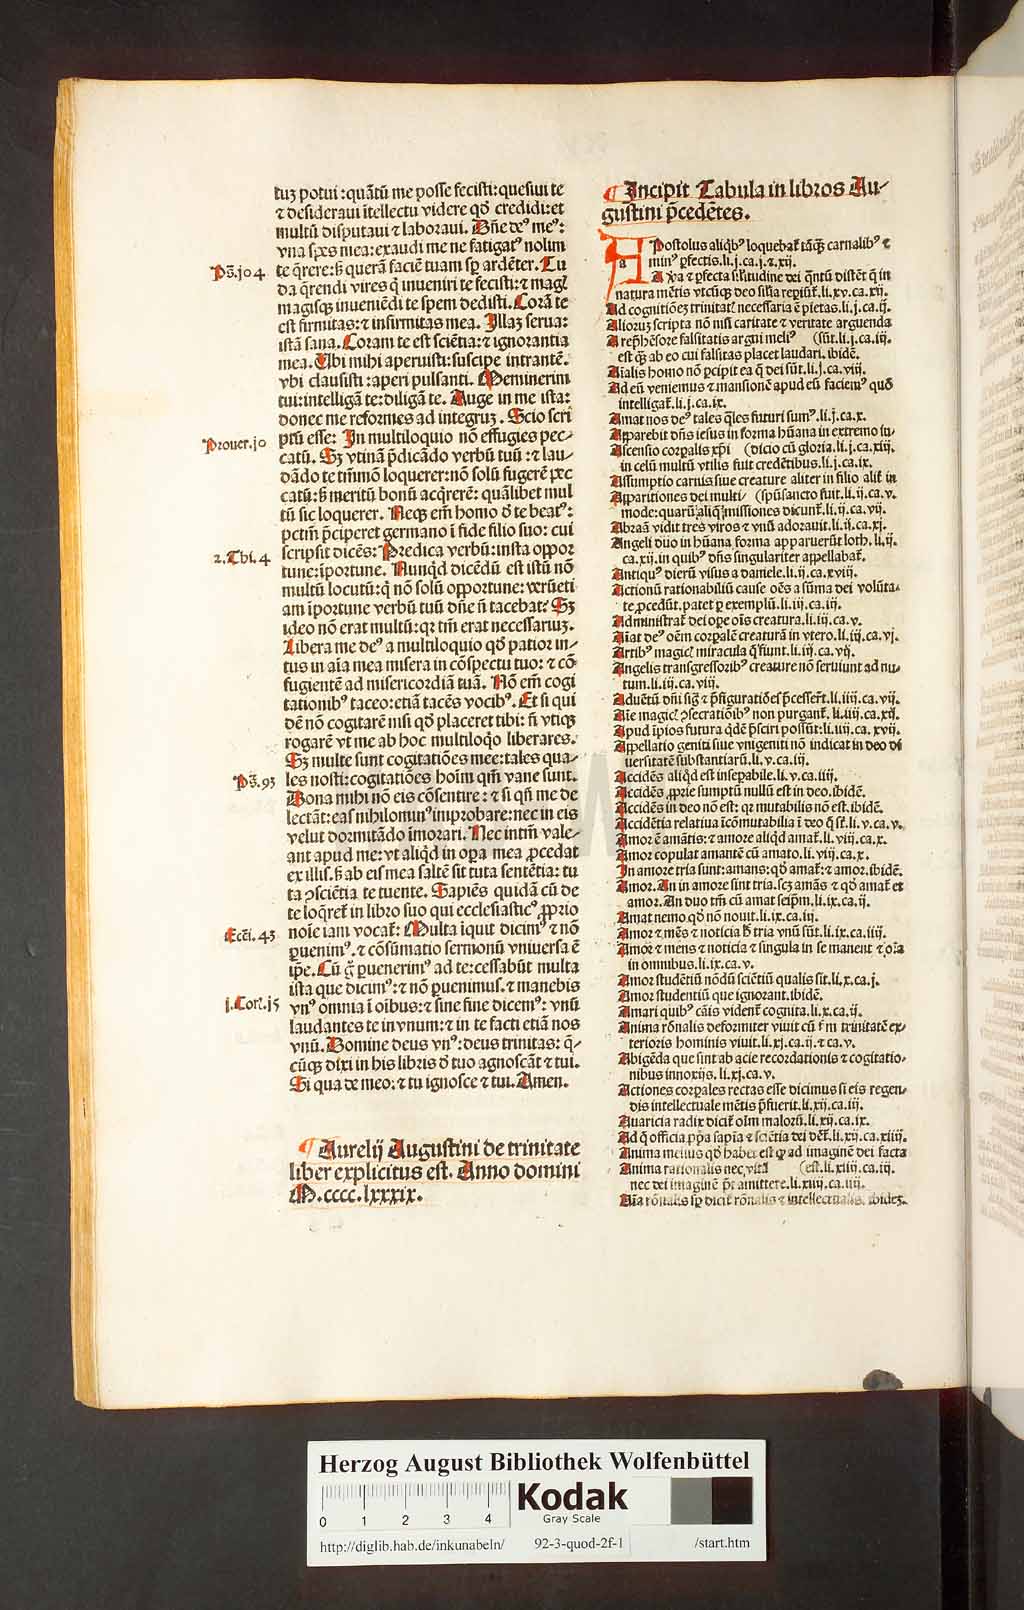 tuz potui:quãtũ me posse fecisti:quesiui te
⁊ desideraui ĩtellectu videre qđ credidi:et
multũ disputaui ⁊ laboraui. Dñe deꝰ meꝰ:
vna spes mea:exaudi me ne fatigatꝰ nolim
Ps̃.j04 te q̃rere:ſꝫ querã faciẽ tuam sꝑ ardẽter. Tu
da q̃rendi vires q̃ inueniri te fecisti:⁊ magꝭ
magisqꝫ inueniẽdi te spem dedisti. Corã te
est firmitas:⁊ infirmitas mea. Illaꝫ serua:
istã sana. Coram te est sciẽtia:⁊ ignorantia
mea. Ubi mihi aperuisti:suscipe intrantẽ.
vbi clausisti:aperi pulsanti. Meminerim
tui:intelligã te:diligã te. Auge in me ista:
donec me reformes ad integruꝫ. Scio scri
Prouer.j0 ptũ esse: In multiloquio nõ effugies pec-
catũ. Sꝫ vtinã p̃dicãdo verbũ tuũ:⁊ lau-
dãdo te tm̃mõ loquerer:nõ solũ fugerẽ pec
catũ:ſꝫ meritũ bonũ acq̃rerẽ: quãlibet mul
tũ sic loquerer. Neqꝫ em̃ homo đ te beatꝰ:
pctm̃ p̃ciperet germano ĩ fide filio suo: cui
2.Thi.4 scripsit dicẽs: Predica verbũ:insta oppor
tune:ĩportune. Nunqđ dicẽdũ est istũ nõ
multũ locutũ:q̃ nõ solũ opportune:verũeti
am ĩportune verbũ tuũ dñe ñ tacebat: Sꝫ
ideo nõ erat multũ:qꝛ tm̃ erat necessariuꝫ.
Libera me deꝰ a multiloquio qđ patior in-
tus in aĩa mea misera in cõspectu tuo: ⁊ cõ-
fugientẽ ad misericordiã tuã. Nõ em̃ cogi
tationibꝰ taceo:etiã tacẽs vocibꝰ. Et si qui
dẽ nõ cogitarẽ nisi qđ placeret tibi: ñ vtiqꝫ
rogarẽ vt me ab hoc multiloq̃o liberares.
Sꝫ multe sunt cogitatiões mee:tales qua-
Ps̃.93 les nosti:cogitatiões hoĩm qm̃ vane sunt.
Dona mihi nõ eis cõsentire:⁊ si qñ me de
lectãt:eas nihilominꝰ improbare:nec in eis
velut dormitãdo ĩmorari. Nec intm̃ vale-
ant apud me:vt aliqđ in oꝑa mea ꝓcedat
ex illis.ſꝫ ab eis mea saltẽ sit tuta sentẽtia: tu
ta ꝯsciẽtia te tuente. Sapiẽs quidã cũ de
te loq̃ret̃ in libro suo qui ecclesiasticꝰ ꝓprio
Ecc̃i.43 noĩe iam vocat̃: Multa ĩquit dicimꝰ ⁊ nõ
ꝑuenimꝰ.⁊ cõsũmatio sermonũ vniuersa ẽ
ip̃e. Cũ g̃ ꝑuenerimꝰ ad te:cessabũt multa
ista que dicimꝰ:⁊ nõ ꝑuenimus.⁊ manebis
j.Cori.j5 vnꝰ omnia ĩ oĩbus:⁊ sine fine dicemꝰ: vnũ
laudantes te in vnum:⁊ in te facti etiã nos
vnũ. Domine deus vnꝰ:deus trinitas: q̃-
cũqꝫ dixi in his libris đ tuo agnoscãt ⁊ tui.
Si qua de meo:⁊ tu ignosce ⁊ tui. Amen.
¶ Aurelij Augustini de trinitate
liber explicitus est. Anno domini
M.cccc.lxxxix.
¶ Incipit Tabula in libros Au-
gustini p̃cedẽtes.
Apostolus aliqbꝰ loquebat̃ tãqꝫ carnalibꝰ ⁊
minꝰ ꝑfectis.li.j.ca.j.⁊.xij.
⁊ ꝑfecta sĩlitudine dei q̃ntũ distẽt q̃ in
natura mẽtis vtcũqꝫ deo sĩlia reꝑiũt̃.li.xv.ca.xij.
Ad cognitiõeꝫ trinitatꝭ necessaria ẽ pietas.li.j.ca.ij.
Alioruꝫ scripta nõ nisi caritate ⁊ veritate arguenda
A rep̃hẽsore falsitatis argui meliꝰ (sũt.li.j.ca.iij.
est qꝫ ab eo cui falsitas placet laudari.ibidẽ.
Aĩalis homo nõ ꝑcipit ea q̃ dei sũt.li.j.ca.viij.
Ad eũ veniemus ⁊ mansionẽ apud eũ faciemꝰ quõ
intelligat̃.li.j.ca.ix.
Amat nos deꝰ tales q̃les futuri sumꝰ.li.j.ca.x.
Apparebit dñs iesus in forma hũana in extremo iu-
Ascensio corꝑalis xp̃i (dicio cũ gloria.li.j.ca.xiij.
in celũ multũ vtilis fuit credẽtibus.li.j.ca.ix.
Assumptio carnis siue creature aliter in filio alit̃ in
Apparitiones dei multi- (spũsancto fuit.li.ij.ca.v.
mode:quarũ aliq̃ missiones dicunt̃.li.ij.ca.vij.
Abraã vidit tres viros ⁊ vnũ adorauit.li.ij.ca.xj.
Angeli duo in hũana forma apparuerũt loth.li.ij.
ca.xij.in quibꝰ dñs singulariter appellabat̃.
Antiquꝰ dierũ visus a daniele.li.ij.ca.xviij.
Actionũ rationabiliũ cause oẽs a sũma dei volũta-
te ꝓcedũt.patet ꝑ exemplũ.li.iij.ca.iij.
Administrat̃ dei ope oĩs creatura.li.iij.ca.v.
Aĩat deꝰ oẽm corꝑalẽ creaturã in vtero.li.iij.ca.vj.
Artibꝰ magicꝭ miracula q̃ fiunt.li.iij.ca.vij.
Angelis transgressoribꝰ creature nõ seruiunt ad nu-
tum.li.iij.ca.viij.
Aduẽtũ dñi sig̃ ⁊ p̃figuratiões p̃cesser̃t.li.iiij.ca.vij.
Aĩe magicꝭ ꝯsecratiõibꝰ non purgant̃.li.iiij.ca.xij.
Apud ĩpios futura q̃dẽ p̃sciri possũt:li.iiij.ca.xvij.
Appellatio geniti siue vnigeniti nõ indicat in deo di
uersitatẽ substantiarũ.li.v.ca.iij.
Accidẽs aliqđ est insepabile.li.v.ca.iiij.
Accidẽs ꝓprie sumptũ nullũ est in deo.ibidẽ.
Accidẽs in deo nõ est: qꝛ mutabilis nõ est.ibidẽ.
Accidẽtia relatiua ĩcõmutabilia ĩ deo q̃ sĩt.li.v.ca.v.
Amor ẽ amãtis:⁊ amore aliqđ amat̃.li.viij.ca.x.
Amor copulat amantẽ cũ amato.li.viij.ca.x.
In amore tria sunt:amans:qđ amat̃:⁊ amor.ibidẽ.
Amor. An in amore sint tria.scꝫ amãs ⁊ qđ amat̃ et
amor.An duo tm̃ cũ amat seip̃m.li.ix.ca.ij.
Amat nemo qđ nõ nouit.li.ix.ca.iij.
Amor ⁊ mẽs ⁊ noticia ħ tria vnũ sũt.li.ix.ca.iiij.
Amor ⁊ mens ⁊ noticia ⁊ singula in se manent ⁊ oĩa
in omnibus.li.ix.ca.v.
Amor studẽtiũ nõdũ sciẽtiũ qualis sit.li.x.ca.j.
Amor studentiũ que ignorant.ibidẽ.
Amari quibꝰ cãis vident̃ cognita.li.x.ca.ij.
Anima rõnalis deformiter viuit cũ ẜm trinitatẽ ex-
terioris hominis viuit.li.xj.ca.ij.⁊ ca.v.
Abigẽda que sint ab acie recordationis ⁊ cogitatio-
nibus innoxijs.li.xj.ca.v.
Actiones corꝑales rectas esse dicimus si eis regen-
dis intellectuale mẽtis p̃fuerit.li.xij.ca.iij.
Auaricia radix dicit̃ oĩm malorũ.li.xij.ca.ix.
Ad q̃ officia ꝑp̃a sapĩa ⁊ sciẽtia dei dẽt̃.li.xij.ca.xiiij.
Anima melius qđ habet est qꝫ ad imaginẽ dei facta
Anima rationalis nec vita (est.li.xiiij.ca.ij.
nec dei imaginẽ p̃t amittere.li.xiiij.ca.iiij.
Aĩa rõnalis sꝑ dicit̃ rõnalis ⁊ intellectualis.ibideꝫ.
Herzog August Bibliothek Wolfenbüttel
0 1 2 3 4
Kodak
Gray Scale
http://diglib.hab.de/inkunabeln/ 92-3-quod-2f-1 /start.htm